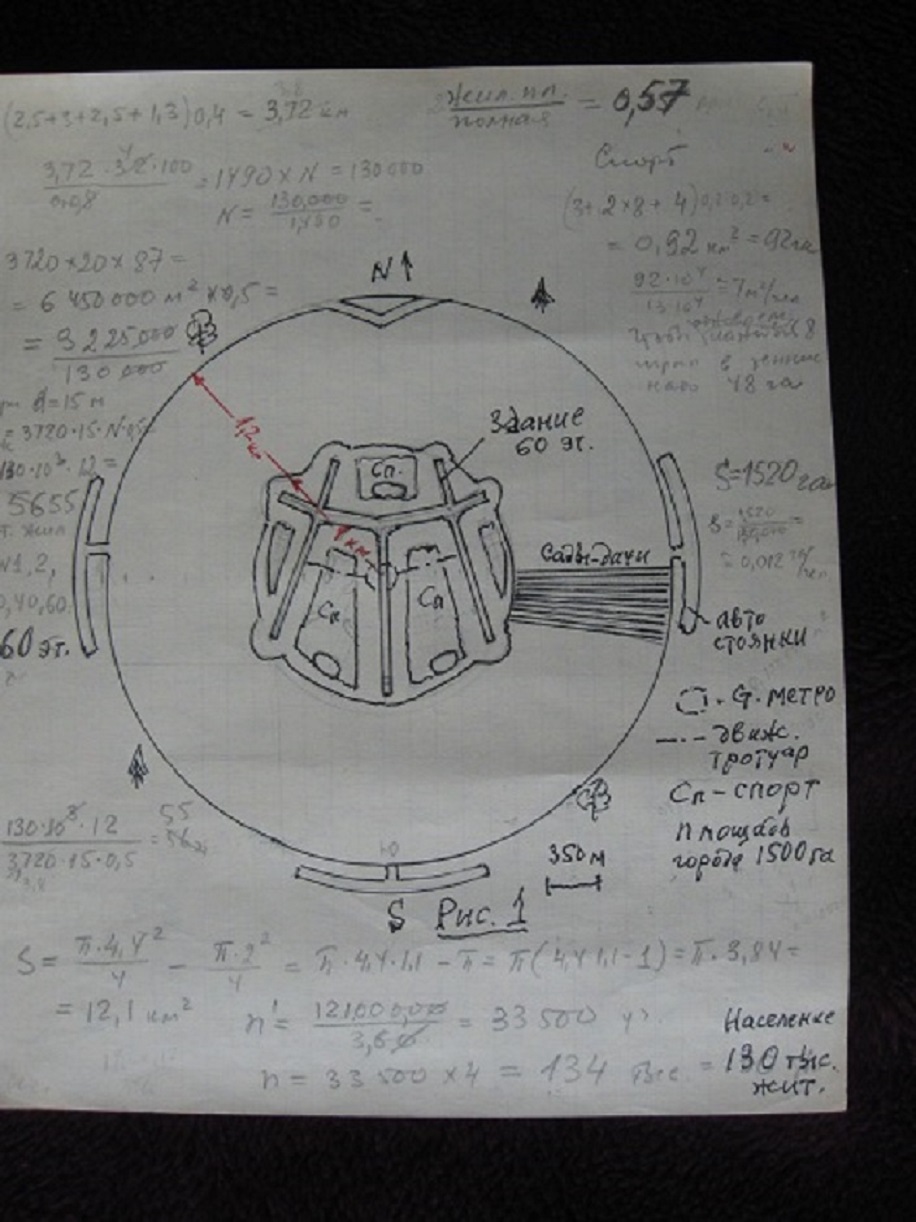 (2,5+3+2,5+1,3)0,4 = 3,72 км
жил. пл. / полная = 0,57
Спорт
= 1490 × N = 130000
N = 130,000 / 1,490 =
= 0,92 км² = 92 га
3720×20×87 =
= 6 450 000 м² × 0,5 =
= 3 225,000 / 130 000
92·10⁴ / 13·10⁴ = 7 м²/чел
48 га
d = 15 м
= 3720·15·N·0,5
130·10³·12 =
5655
т. жил
N 1,2,
0,40,60.
60 эт.
N ↑
1,2 км
1 км
Здание
60 эт.
Сп.
Сп
Сп
Сады-дачи
S = 1520 га
= 0,012 га/чел.
авто
стоянки
G. метро
движ.
тротуар
Сп – спорт
площадь
города 1500 га
130·10³·12 / 3720·15·0,5 = 55
Ю
350 м
S Рис. 1
S = π·4,4² / 4 − π·2² / 4 = π·4,4·1,1 − π = π(4,4·1,1−1) = π·3,84 =
= 12,1 км²
n' = 121000,00 / 3,60 = 33 500 уч.
n = 33 500 × 4 = 134 тыс =
Население
130 тыс.
жит.